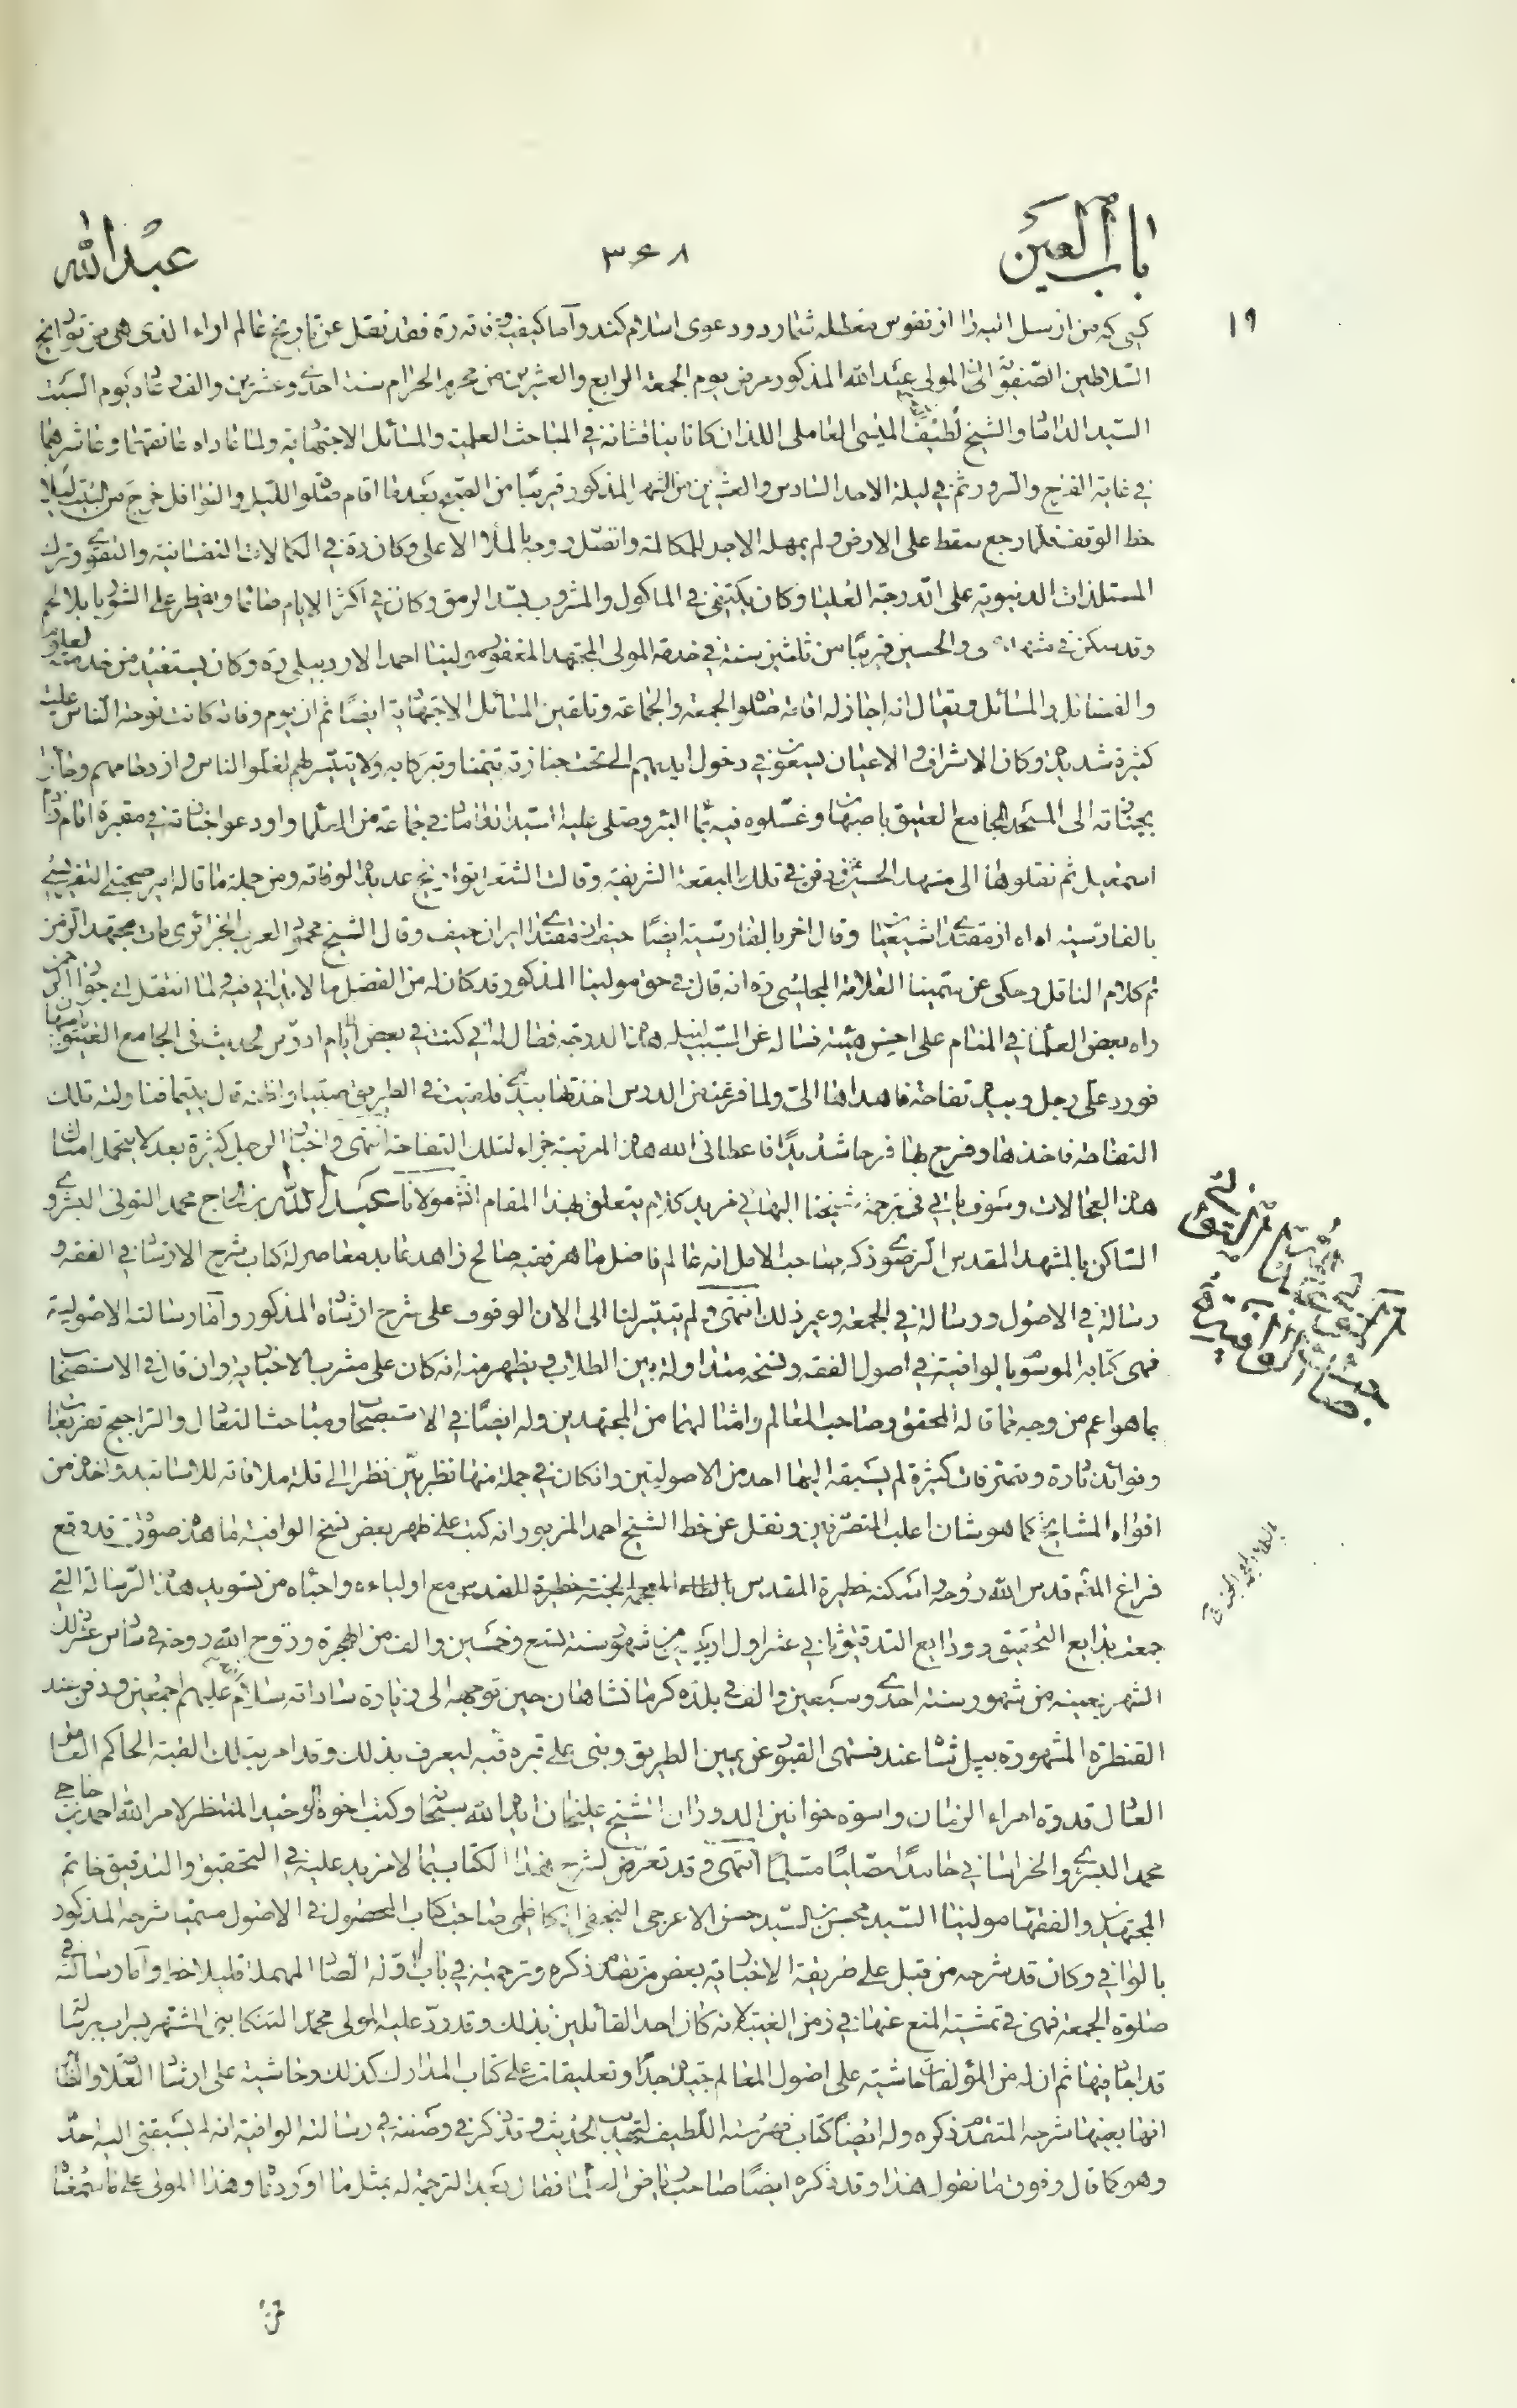 باب العين
٣٦٨
عبد الله
١٩
كسى كه من از سل انبه را از نفوس معطله شمارد ودعوى اسلام كند وأما كيفية وفاته ره فقد نقل عن تاريخ عالم اراء الذى هى من تواريخ
السلاطين الصفوية ان المولى عبد الله المذكور مرض يوم الجمعة الرابع والعشرين من محرم الحرام سنة احدى وعشرين والف وعاده يوم السبت
السيد الداماد والشيخ لطيف الميسى العاملى اللذان كانا يناقشانه في المباحث العلمية والمسائل الاجتهادية ولما عاداه عانقهما وعاشرهما
في غاية الفرح والسرور ثم في ليلة الاحد السادس والعشرين من الشهر المذكور قريبا من الصبح بعد ما اقام صلوة الليل والنوافل خرج من البيت ليلا
حظ الوقت فلما رجع سقط على الارض ولم يمهله الاجل للمكالمة واتصل روحه بالملأ الاعلى وكان ره في الكمالات النفسانية والتقوى وترك
المستلذات الدنيوية على الدرجة العليا وكان يكتفى في المأكول والمشروب بسد الرمق وكان في اكثر الايام صائما ويفطر على الشوربا بلا لحم
وقد سكن في مشهد والحسين قريبا من ثلثين سنة في خدمة المولى المجتهد المغفور مولينا احمد الاردبيلى ره وكان يستفيد من خدمته العلوم
والفضائل والمسائل ويقال انه اجاز له اقامة صلوة الجمعة والجماعة وتلقين المسائل الاجتهادية ايضا ثم ان يوم وفاته كانت نوحة الناس عليه
كثيرة شديدة وكان الاشراف والاعيان يسعون في دخول ايديهم الى تحت جنازته تيمنا وتبركا به ولا يتيسر لهم لغلو الناس وازدحامهم وجاؤا
بجنازته الى المسجد الجامع العتيق باصبهان وغسلوه فيه بماء البئر وصلى عليه السيد الداماد في جماعة من العلماء واودعوا جنازته في مقبرة امام زاده
اسمعيل ثم نقلوها الى مشهد الحسين ودفن في تلك البقعة الشريفة وقالت الشعراء تواريخ عديدة لوفاته ومن جملة ما قاله امير صحبتى التفريشى
بالفارسية اه اه از مقتداى شيعيان وقال اخر بالفارسية ايضا حيف از مقتداى ايران حيف وقال الشيخ محمود العرب الجزائرى مات مجتهد الزمن
تم كلام الناقل وحكى عن سمينا العلامة المجلسى ره انه قال في حق مولينا المذكور قد كان له من الفضل ما لا يدانى فيه ولما انتقل الى جوار الرحمن
راه بعض العلماء في المنام على احسن هيئة فساله عن السبب لنيله هذه الدرجة فقال له انى كنت في بعض الايام ادرس الحديث في الجامع العتيق باصبهان
فورد على رجل وبيده تفاحة فاهداها الى ولما فرغت من الدرس اخذتها بيدى فلقيت في الطريق صبيا واظنه قال يتيما فناولته تلك
التفاحة فاخذها وفرح بها فرحا شديدا فاعطانى الله هذه المرتبة جزاء لتلك التفاحة انتهى واخبار الرجل كثيرة بعد لا يتحمل امثال
هذه العجالات وسوف ياتى في ترجمة شيخنا البهائى مزيد كلام يتعلق بهذا المقام انشاء الله مولانا عبد الله بن الحاج محمد التونى البشروى
الساكن بالمشهد المقدس الرضوى ذكره صاحب الامل انه عالم فاضل ماهر فقيه صالح زاهد عابد معاصر له كتاب شرح الارشاد في الفقه و
رسالة في الاصول ورسالة في الجمعة وغير ذلك انتهى ولم يتيسر لنا الى الان الوقوف على شرح ارشاده المذكور وأما رسالته الاصولية
فهى كتابه الموسوم بالوافية في اصول الفقه ونسخه متداولة بين الطلاب ويظهر منه انه كان على مشرب الاخبارية وان قال في الاستصحاب
بما هو اعم من وجه مما قاله المحقق وصاحب المعالم وامثالهما من المجتهدين وله ايضا في الاستصحاب ومباحث التعادل والتراجيح تفريعات
وفوائد نادرة وتصرفات كثيرة لم يسبقه اليها احد من الاصوليين وان كان في جملة منها نظر بين نظرا الى قلة ملاقاته للاساتيد واخذه من
افواه المشايخ كما هو شان اغلب المتصرفين ونقل عن خط الشيخ احمد المزبور انه كتب على ظهر بعض نسخ الوافية ما هذه صورته قد وقع
فراغ المصنف قدس الله روحه واسكنه حظيرة المقدس بالظاء المعجمة الجنة حظيرة القدس مع اوليائه واحبائه من تسويد هذه الرسالة التى
جمعت بدايع التحقيق وودايع التدقيق ثانى عشر اول الربيعين من شهور سنة تسع وخمسين والف من الهجرة وروح الله روحه في سادس عشر ذلك
الشهر بعينه من شهور سنة احدى وسبعين والف في بلدة كرمانشاهان حين توجهه الى زيارة ساداته سلام عليهم اجمعين ودفن عند
القنطرة المشهورة ببل شاه عند منتهى القبور عن يمين الطريق وبنى على قبره قبة ليعرف بذلك وقد امر بتلك القبة الحاكم العامل
العال قدوة امراء الزمان واسوة خوانين الدوران الشيخ عليخان ايده الله سبحانه وكتب اخوه الوحيد المنتظر لامر الله احمد بن حاجى
محمد البشروى الخراسانى حامدا مصليا مسلما انتهى وقد تعرض لشرح هذا الكتاب بما لا مزيد عليه في التحقيق والتدقيق خاتم
المجتهدين والفقهاء مولينا السيد محسن بن السيد حسن الاعرجى النجفى الكاظمى صاحب كتاب المحصول في الاصول مسميا شرحه المذكور
بالوافى وكان قد شرحه من قبل على طريقة الاخبارية بعض من تقدم ذكره وترجمته في باب الصاد المهملة فليلاحظ وأما رسالته في
صلوة الجمعة فهى في تمشية المنع عنها في زمن الغيبة لانه كان احد القائلين بذلك وقد رد عليه المولى محمد التنكابنى المشتهر بسراب برسالة
قد اجاد فيها ثم ان له من المؤلفات حاشيته على اصول المعالم جيدة جدا وتعليقات على كتاب المدارك كذلك وحاشية على ارشاد العلامة والظاهر
انها بعينها شرحه المتقدم ذكره وله ايضا كتاب فهرسته اللطيف لتهذيب الحديث وقد ذكر في وصفه في رسالته الوافية انه لم يسبقنى اليه احد
وهو كما قال وفوق ما نقول هذا وقد ذكره ايضا صاحب رياض العلماء فقال بعد الترجمة له بمثل ما اوردناه وهذا المولى على ما سمعناه